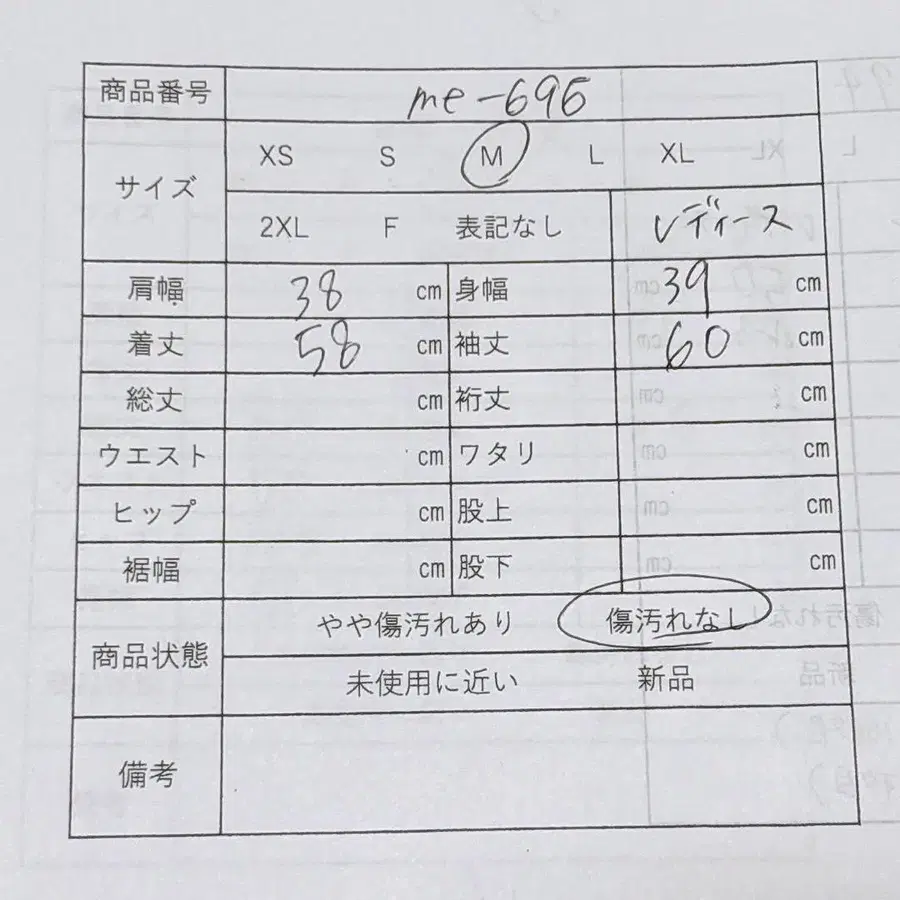 商品番号 me-696
サイズ XS S M L XL
2XL F 表記なし レディース
肩幅 38 cm 身幅 39 cm
着丈 58 cm 袖丈 60 cm
総丈 cm 裄丈 cm
ウエスト cm ワタリ cm
ヒップ cm 股上 cm
裾幅 cm 股下 cm
商品状態 やや傷汚れあり 傷汚れなし
未使用に近い 新品
備考